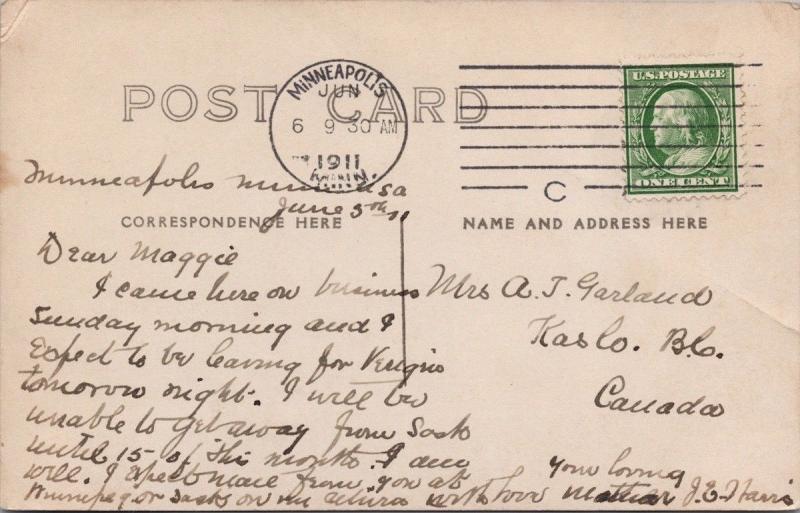 POST CARD
MINNEAPOLIS
JUN
6 9 30 AM
1911
MINN.
U.S. POSTAGE
ONE CENT
C
Minneapolis Minn Usa
June 5th 11
CORRESPONDENCE HERE
NAME AND ADDRESS HERE
Dear Maggie
I came here on business
Sunday morning and I
Expect to be leaving for
tomorow night. I will be
unable to get away from Sask
until 15 of this month. I am
well. I expect mail from you at
Winnipeg or Sask on my return with love
Your loving
J. E. Harris
Mrs A. J. Garland
Kaslo. B.C.
Canada